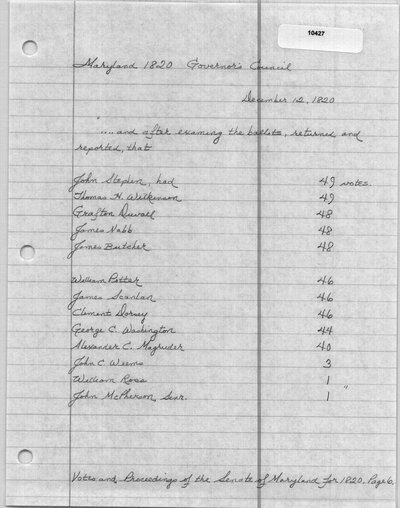 10427
Maryland 1820 Governor's Council
December 12, 1820
"....and after examing the ballots, returned and
reported, that
John Stephen, had 49 votes.
Thomas H. Wilkinson 49
Grafton Duvall 48
James Nabb 48
James Butcher 48
William Potter 46
James Scanlan 46
Clement Dorsey 46
George C. Washington 44
Alexander C. Magruder 40
John C Weems 3
William Ross 1
John McPherson, Senr. 1 "
Votes and Proceedings of the Senate of Maryland for 1820. Page 6.